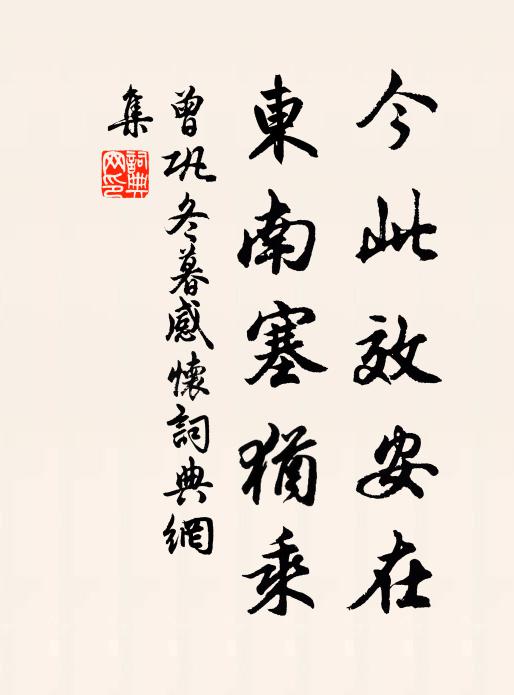 今此效安在
東南塞猶乘
曾巩冬暮感懷詞典網
集
詞典
网印